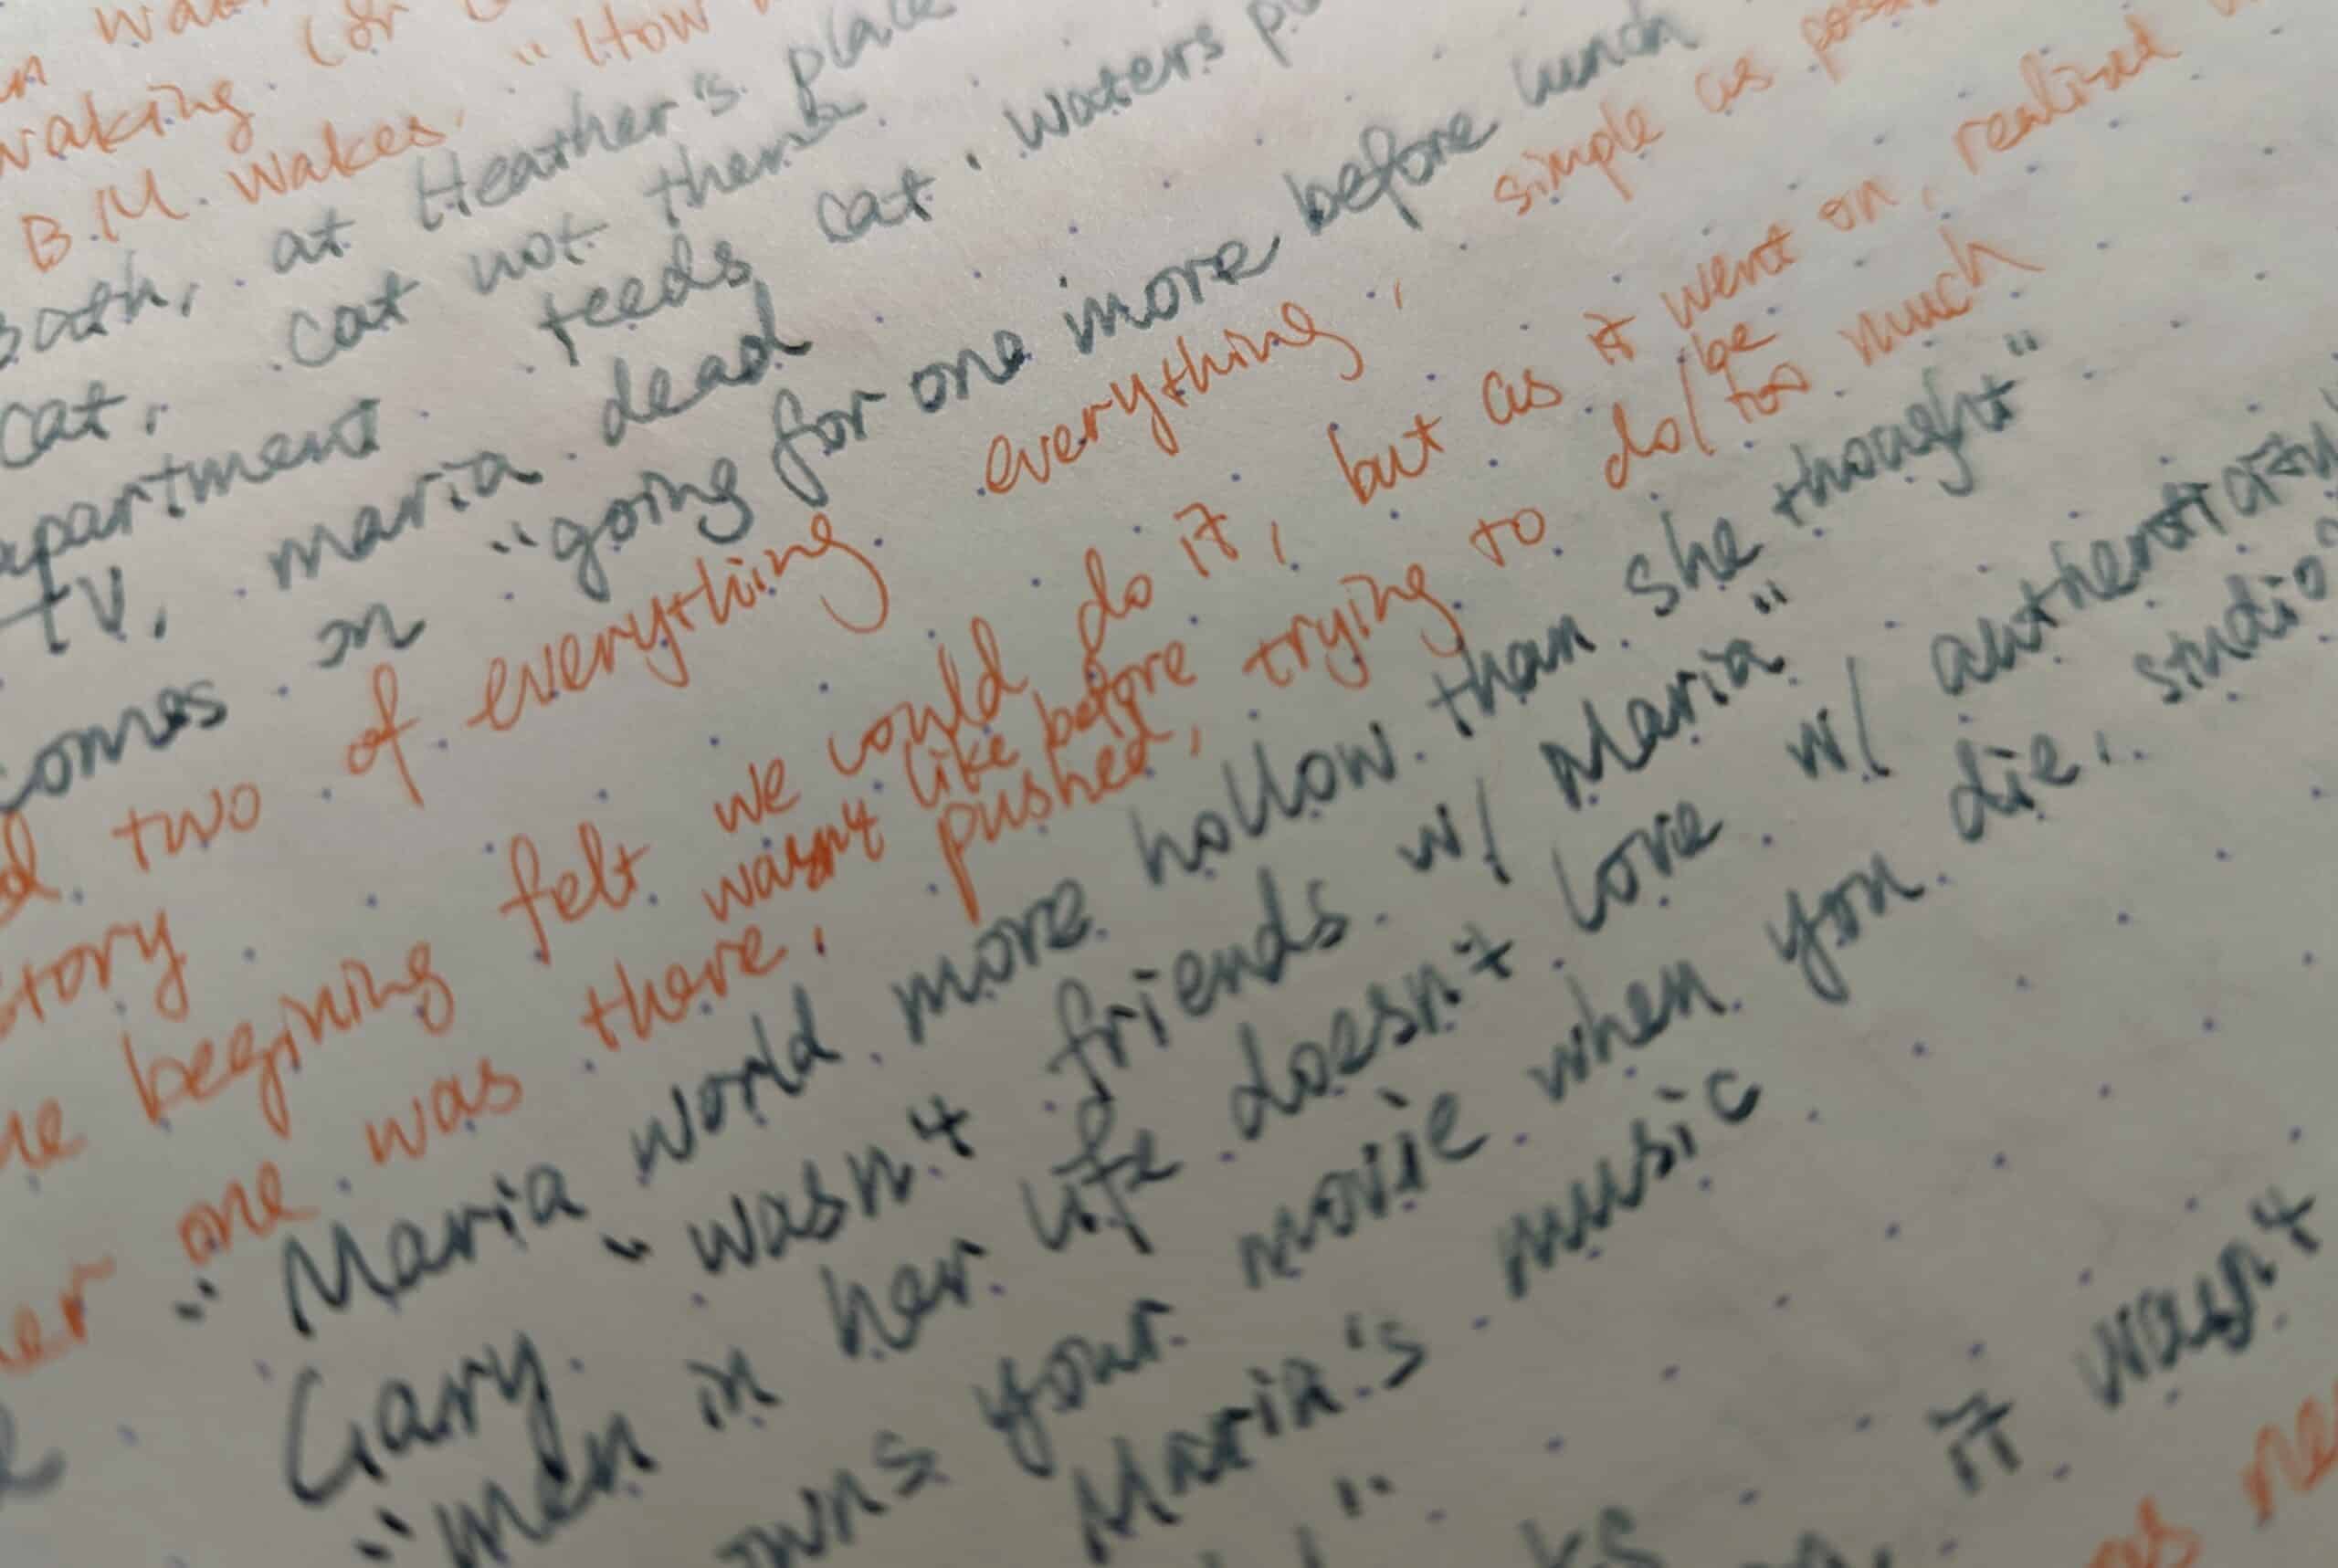 waking. (or
B.M. wakes. "How
Bath, at Heather's place
cat, cat not there
apartment feeds cat. waters
TV, maria dead
comes on "going for one more before lunch
two of everything everything, simple as
story
beginning felt we could do it, but as it went on, realized
wasn't like before be
one was there, pushed, trying to do/too much
"Maria world more hollow than she thought"
Gary "wasn't friends w/ Maria"
"men in her life doesn't love w/
owns your movie when you die, studio
Maria's music
it wasn't